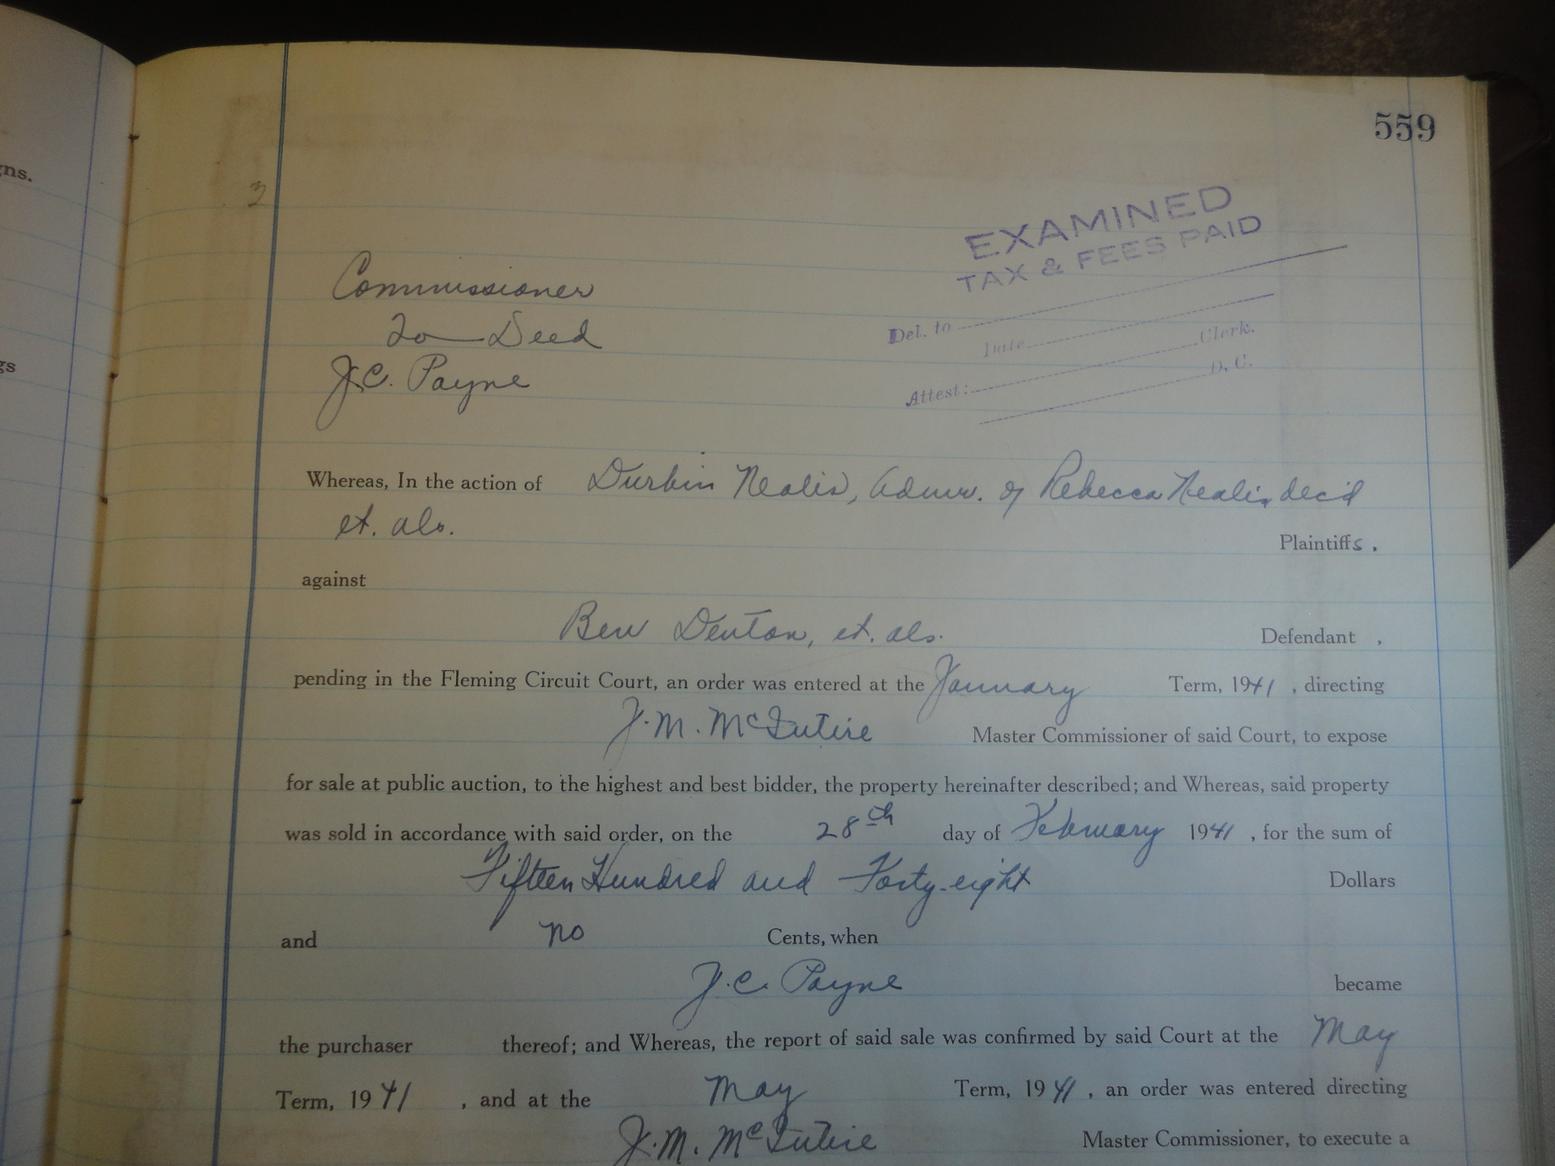 559
gns.
gs
2
EXAMINED
TAX & FEES PAID
Del. to
Date Clerk.
Attest: D. C.
Commissioner
To Deed
J.C. Payne
Whereas, In the action of Durbin Nealis, Admr. of Rebecca Nealis, dec'd
et. als.
Plaintiffs,
against
Ben Denton, et. als. Defendant ,
pending in the Fleming Circuit Court, an order was entered at the January Term, 1941, directing
J.M. McIntire Master Commissioner of said Court, to expose
for sale at public auction, to the highest and best bidder, the property hereinafter described; and Whereas, said property
was sold in accordance with said order, on the 28th day of February 1941, for the sum of
Fifteen Hundred and Forty-eight Dollars
and no Cents, when
J.C. Payne became
the purchaser thereof; and Whereas, the report of said sale was confirmed by said Court at the May
Term, 1941, and at the May Term, 1941, an order was entered directing
J.M. McIntire Master Commissioner, to execute a